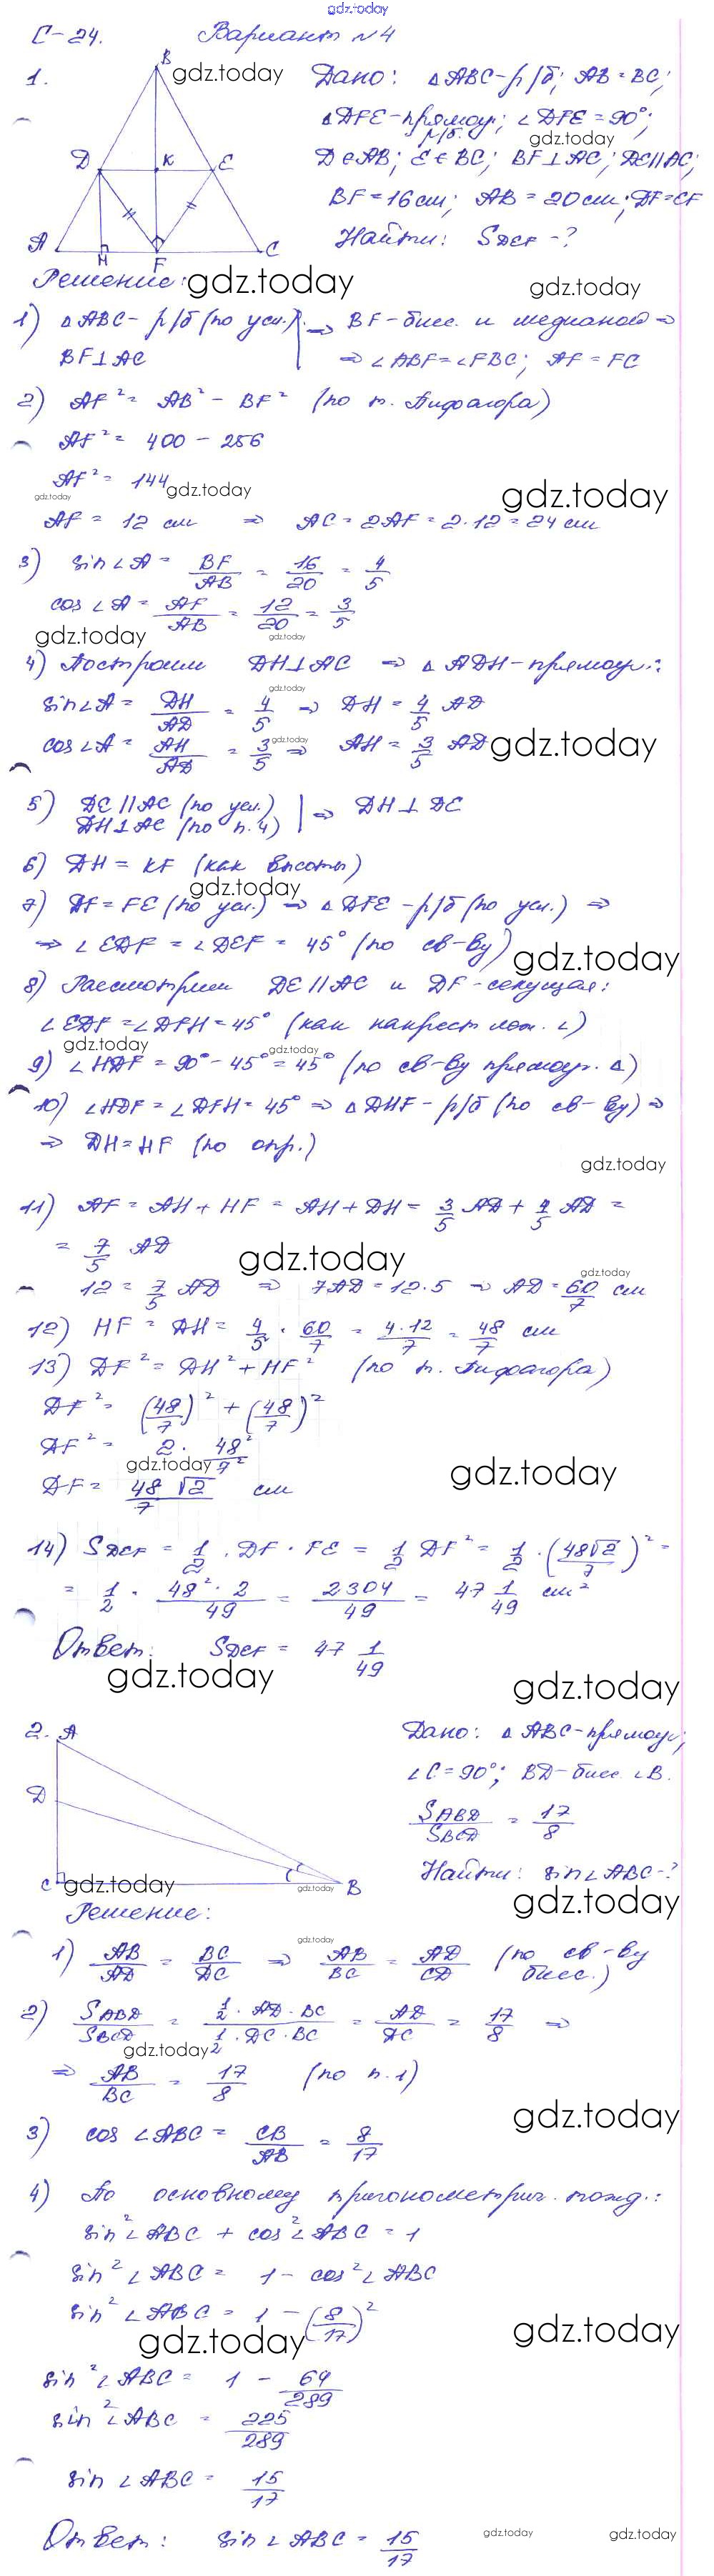 gdz.today
С-24. Вариант №4
1. B gdz.today Дано: △ABC-р/б; AB=BC;
△DFE-прямоуг; ∠DFE=90°;
р/б. gdz.today
D K E D∈AB; E∈BC; BF⊥AC; DE∥AC;
BF=16см; AB=20см; DF=EF
A H F C Найти: S DEF -?
Решение: gdz.today gdz.today
1) △ABC-р/б (по усл.) ⇒ BF-бисс. и медианой ⇒
BF⊥AC ⇒ ∠ABF=∠FBC; AF=FC
2) AF²= AB² - BF² (по т. Пифагора)
AF²= 400 - 256
AF²= 144 gdz.today
gdz.today gdz.today
AF= 12 см ⇒ AC=2AF=2·12=24 см
3) sin∠A= BF/AB = 16/20 = 4/5
cos∠A= AF/AB = 12/20 = 3/5
gdz.today gdz.today
4) Построим DH⊥AC ⇒ △ADH-прямоуг.:
gdz.today
sin∠A= DH/AD = 4/5 ⇒ DH= 4/5 AD
cos∠A= AH/AD = 3/5 gdz.today ⇒ AH= 3/5 AD gdz.today
5) DE∥AC (по усл.) ⇒ DH⊥DE
DH⊥AC (по п.4)
6) DH= KF (как высоты)
gdz.today
7) DF=FE (по усл.) ⇒ △DFE-р/б (по усл.) ⇒
⇒ ∠EDF=∠DEF= 45° (по св-ву) gdz.today
8) Рассмотрим DE∥AC и DF-секущая:
∠EDF=∠DFH=45° (как накрест леж. ∠)
gdz.today gdz.today
9) ∠HDF=90°-45°=45° (по св-ву прямоуг. △)
10) ∠HDF=∠DFH=45° ⇒ △DHF-р/б (по св-ву) ⇒
⇒ DH=HF (по опр.)
gdz.today
11) AF=AH+HF=AH+DH= 3/5 AD+ 4/5 AD =
= 7/5 AD gdz.today
gdz.today
12= 7/5 AD ⇒ 7AD=12·5 ⇒ AD= 60/7 см
12) HF= DH= 4/5 · 60/7 = 4·12/7 = 48/7 см
13) DF²= DH²+HF² (по т. Пифагора)
DF²= (48/7)²+(48/7)²
DF²= 2· 48²/7²
gdz.today gdz.today
DF= 48√2/7 см
14) S DEF = 1/2 · DF · FE = 1/2 DF² = 1/2 ·(48√2/7)² =
= 1/2 · 48²·2/49 = 2304/49 = 47 1/49 см²
Ответ: S DEF = 47 1/49
gdz.today gdz.today
2. A Дано: △ABC-прямоуг;
D ∠C=90°; BD-бисс. ∠B.
S ABD/S BCD = 17/8
C gdz.today gdz.today B Найти: sin∠ABC-?
Решение: gdz.today
gdz.today
1) AB/AD = BC/DC ⇒ AB/BC = AD/CD (по св-ву бисс.)
2) S ABD/S BCD = 1/2·AD·BC / 1/2·DC·BC = AD/DC = 17/8 ⇒
gdz.today
⇒ AB/BC = 17/8 (по п.1)
gdz.today
3) cos∠ABC= CB/AB = 8/17
4) По основному тригонометрич. тожд.:
sin²∠ABC + cos²∠ABC=1
sin²∠ABC= 1 - cos²∠ABC
sin²∠ABC= 1 - (8/17)²
gdz.today gdz.today
sin²∠ABC= 1 - 64/289
sin²∠ABC = 225/289
sin∠ABC= 15/17
Ответ: sin∠ABC= 15/17 gdz.today gdz.today